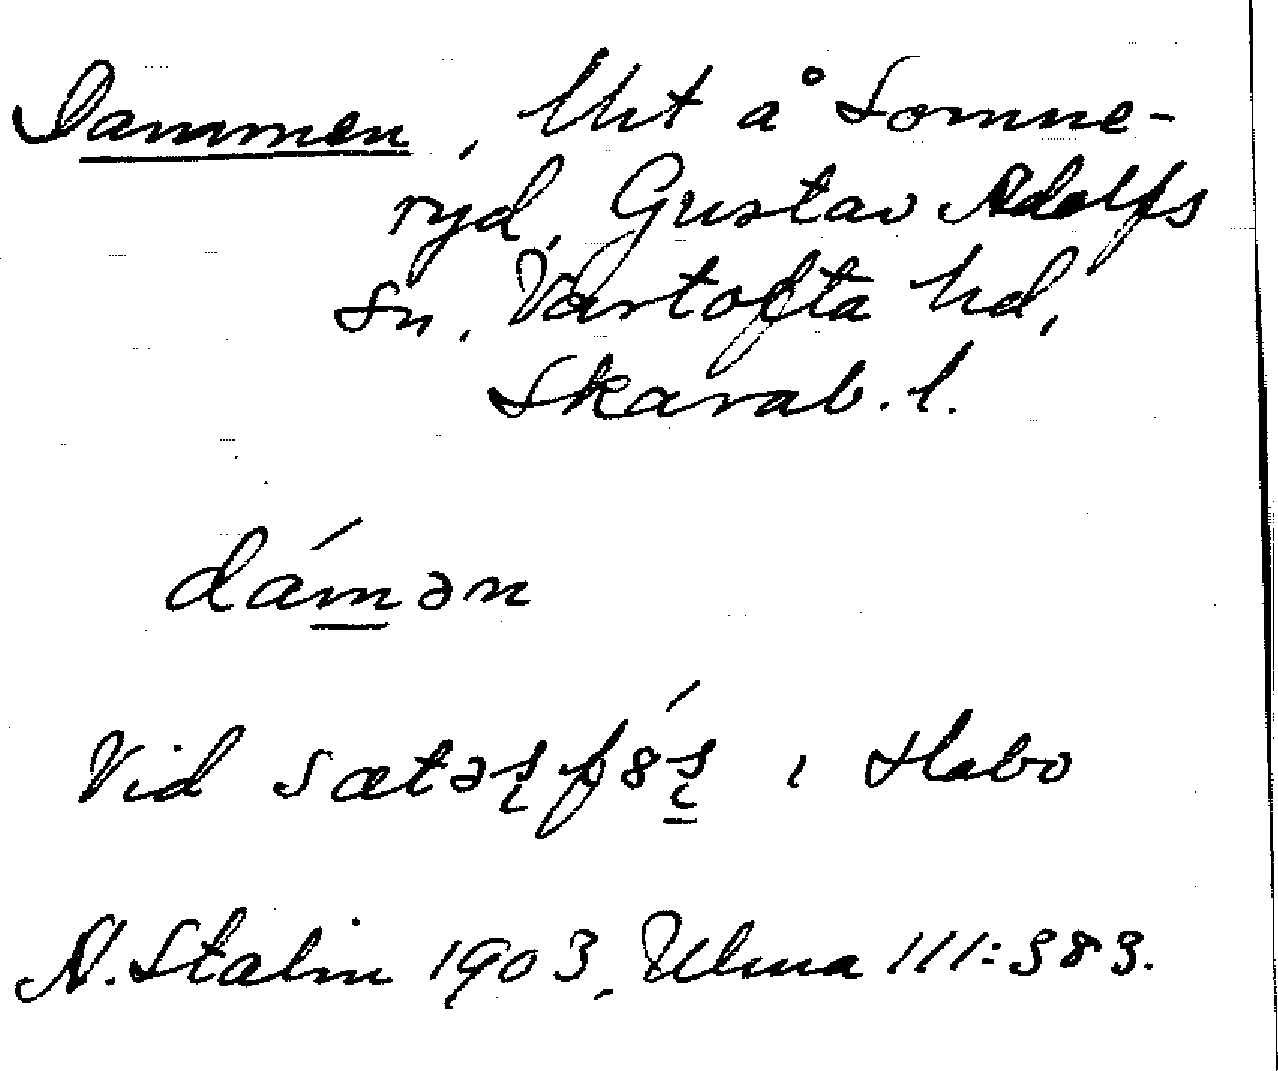 Dammen, lht å Somne-
ryd, Gustav Adolfs
sn, Vartofta hd,
Skarab. l.
dámən
Vid i Habo
A. Stalin 1903, Ulma 111:383.